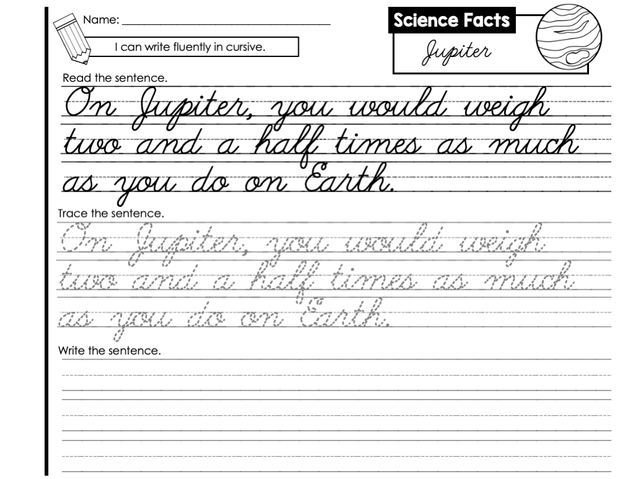 Name: ____________________
Science Facts
I can write fluently in cursive.
Jupiter
Read the sentence.
On Jupiter, you would weigh
two and a half times as much
as you do on Earth.
Trace the sentence.
On Jupiter, you would weigh
two and a half times as much
as you do on Earth.
Write the sentence.